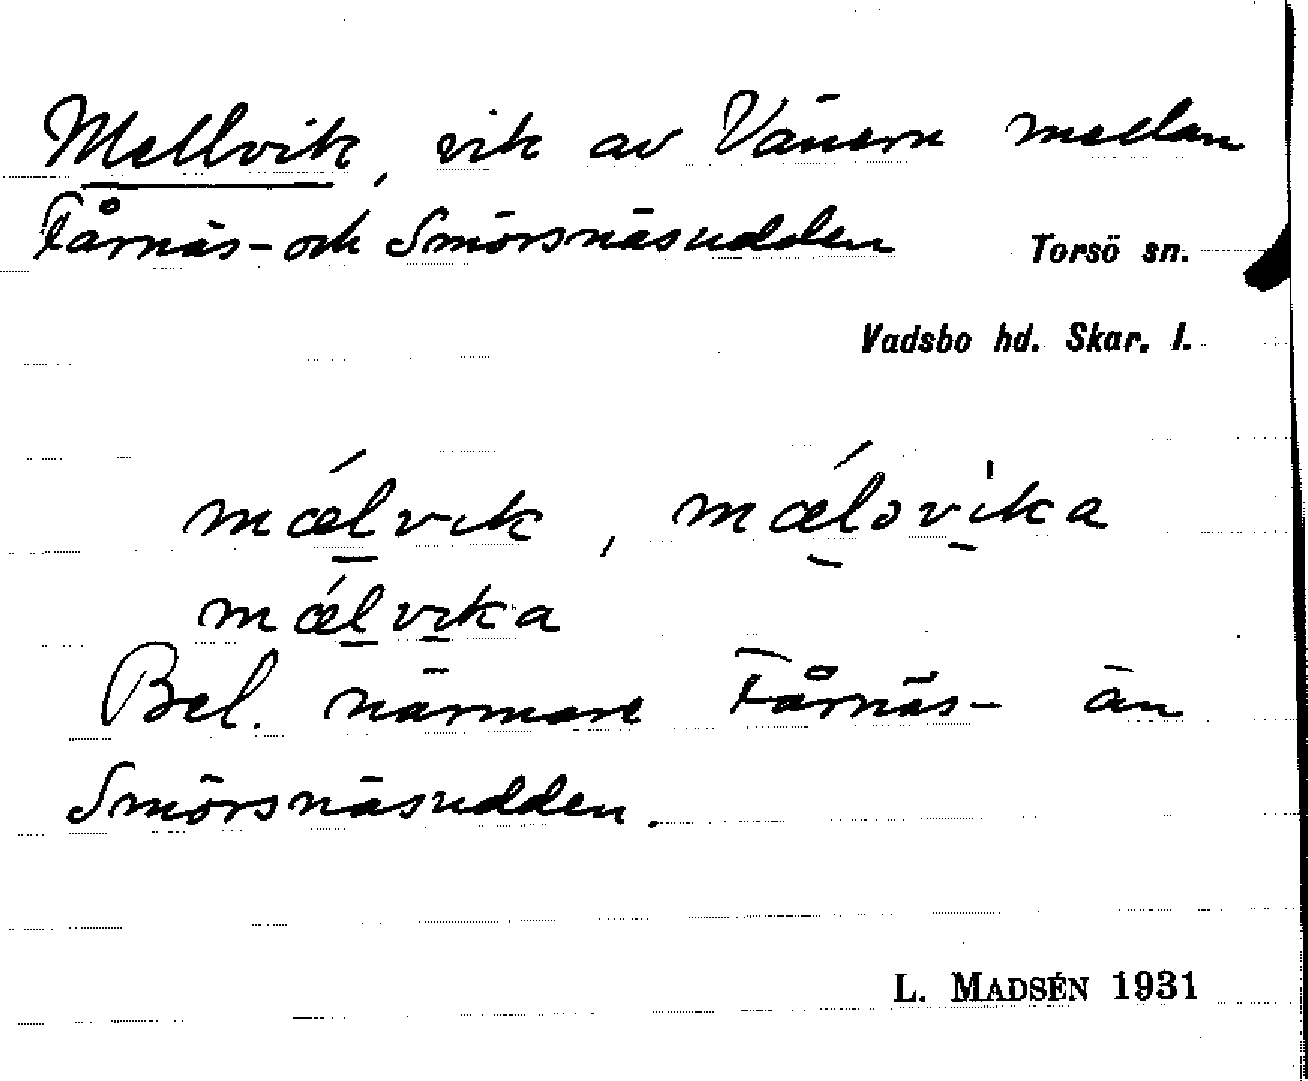 Mellvik, vik av Vänern mellan
Fårnäs- och Smörsnäsudden Torsö sn.
Vadsbo hd. Skar. l.
mǽlvik, mǽlovika
mǽlvika
Bel. närmare Fårnäs- än
Smörsnäsudden.
L. MADSÉN 1931